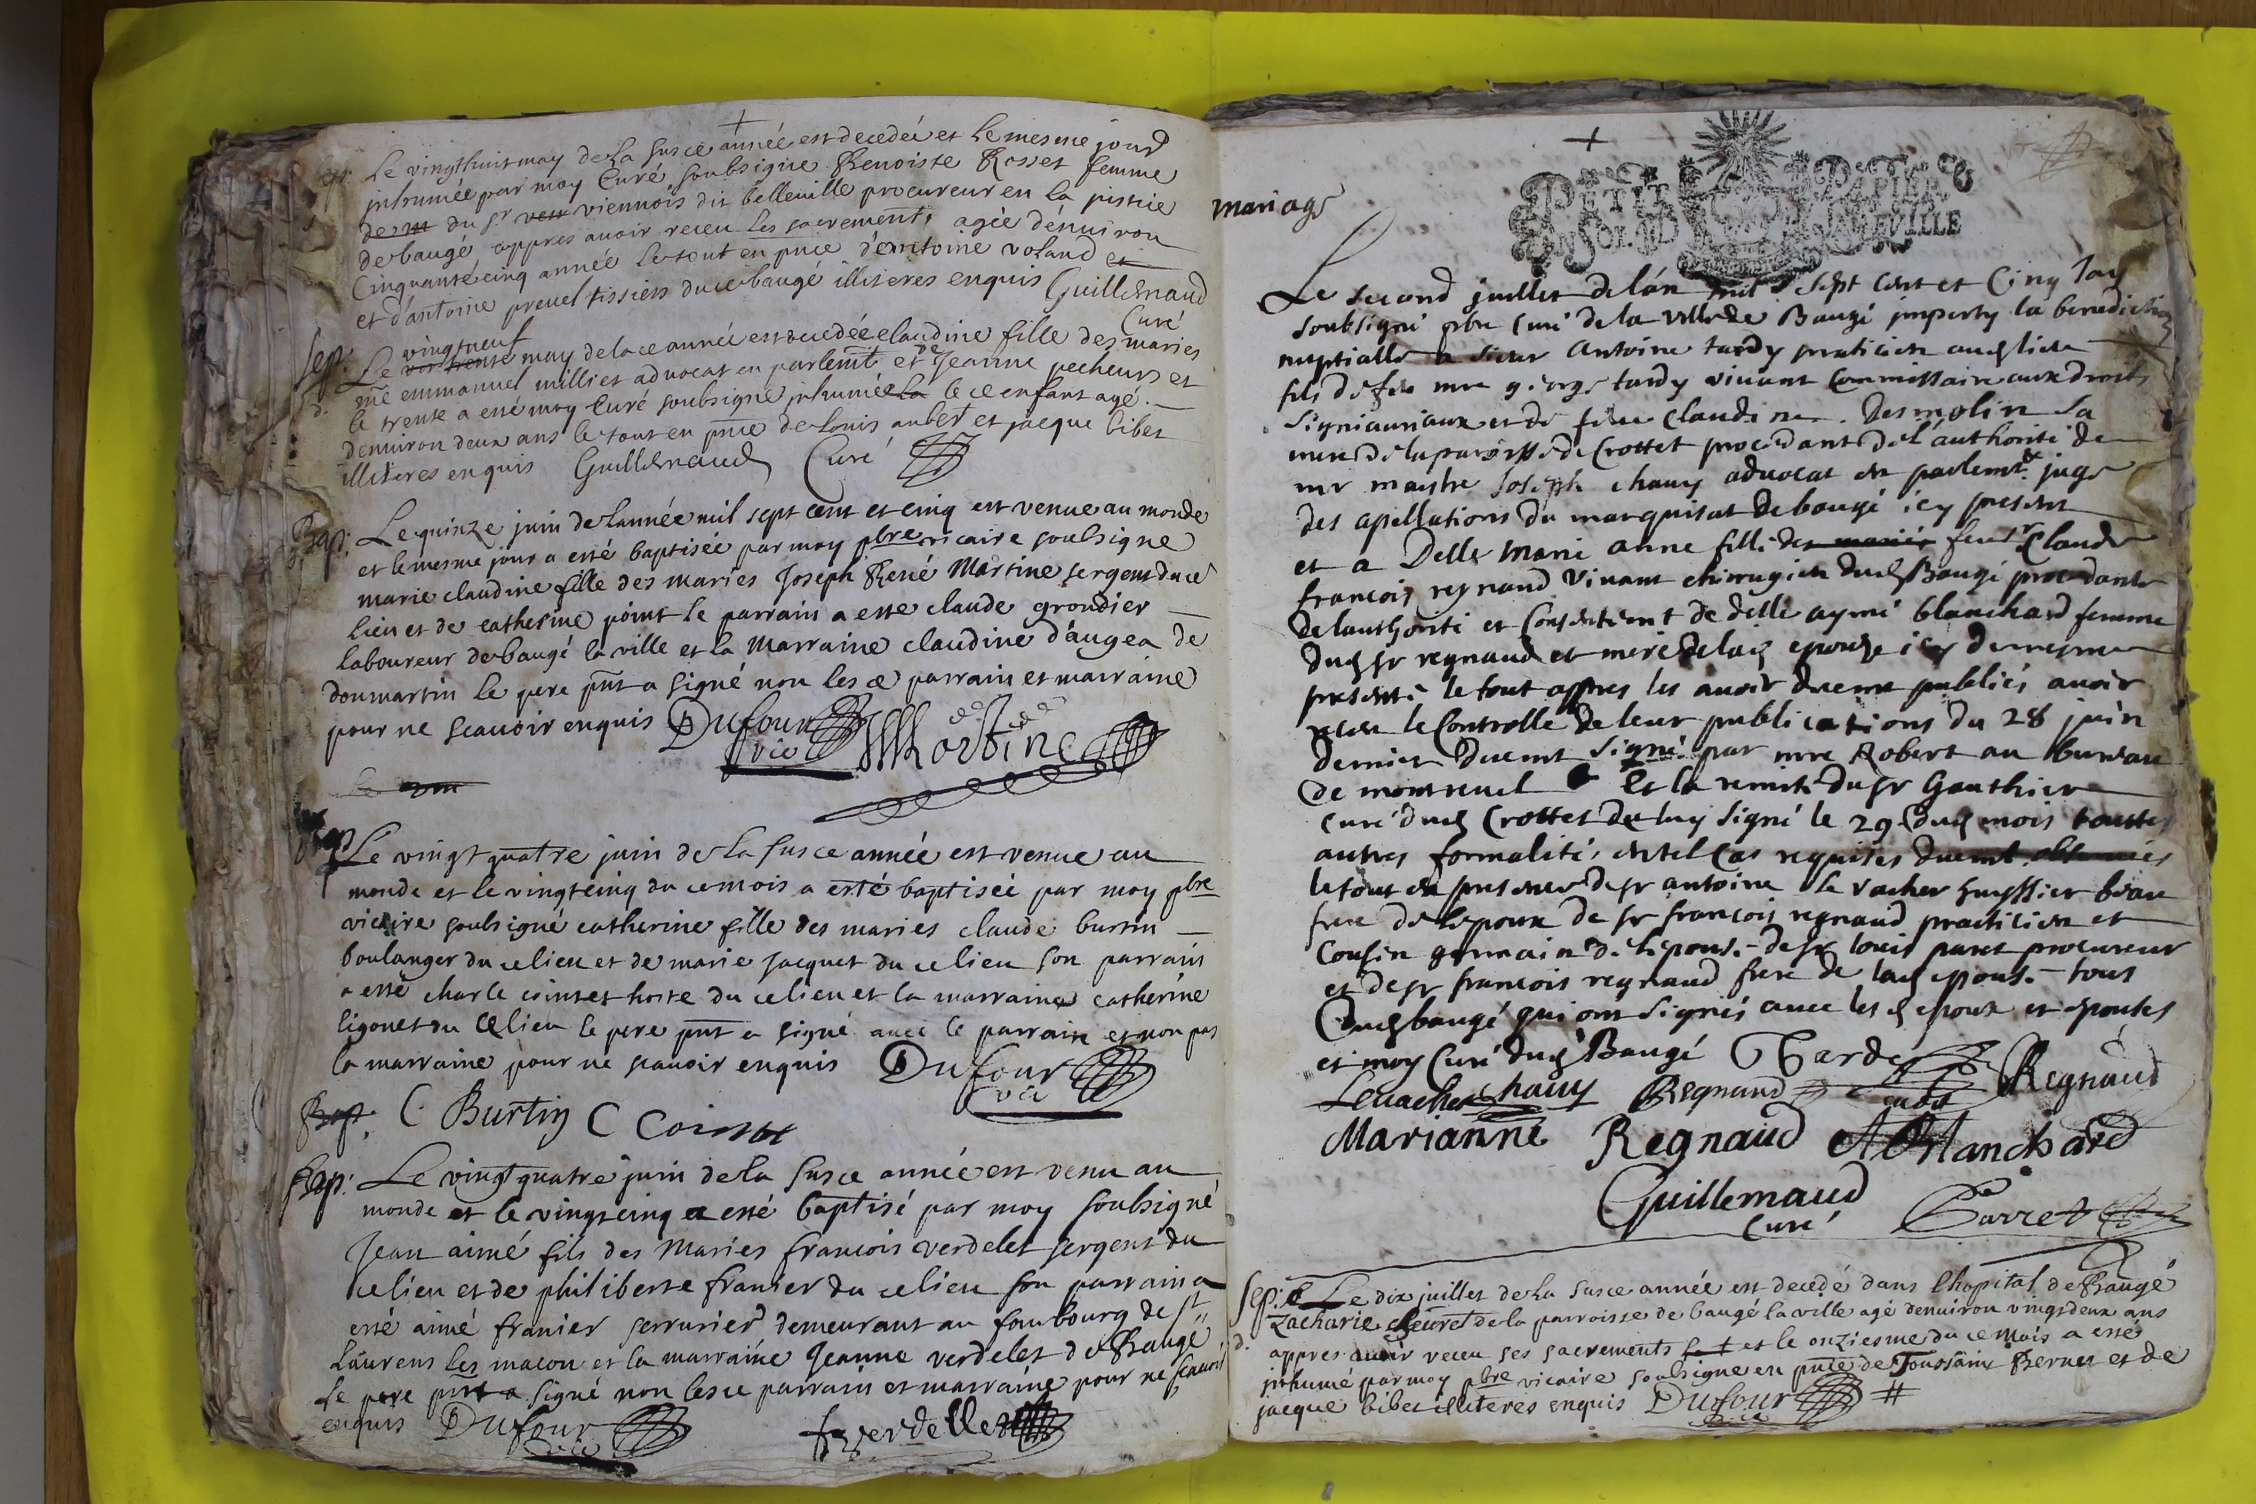 Sep: Le vingthuit may de la susce année est decedée et le mesme jour
inhumée par moy Curé soubsigne Benoiste Rosset femme
du sr viennois dit belleuille procureur en la justice
de baugé appres auoir receu les sacrements agée d'enuiron
Cinquantecinq année le tout en pnce d'antoine voland et
et d'antoine preuel tissiers du ce baugé illiteres enquis Guillemaud
Curé
Sep: Le vingt neuf may de la ce année est decedée claudine fille des maries
me emmanuel milliet aduocat en parlemt et de Jeanne pecheurs et
le trente a esté moy Curé soubsigne inhumée le ce enfant agé
d'enuiron deux ans le tout en pnce de Louis aubert et jacque bibet
illiteres enquis Guillemaud Curé
Bap: Le quinze juin de lannée mil sept cent et cinq est venue au monde
et le mesme jour a esté baptisée par moy pbre vicaire soubsigne
marie claudine fille des maries Joseph René Martine sergent du ce
lieu et de catherine point le parrain a este claude grondier
laboureur de baugé la ville et la Marraine claudine d'augea de
domartin le pere pnt a signé non les ce parrain et marraine
pour ne scauoir enquis Dufour vic Martine
Bap Le vingt quatre juin de la susce année est venue au
monde et le vingtcinq du ce mois a esté baptisée par moy pbre
vicaire soubsigné catherine fille des maries claude burtin
boulanger du ce lieu et de marie jacquet du ce lieu son parrain
a esté charle cointet hoste du ce lieu et la marraine catherine
ligonet du ce lieu le pere pnt a signé auec le parrain et non pas
la marraine pour ne scauoir enquis Dufour vic
Bap: C Burtin C Cointet
Bap: Le vingt quatre juin de la susce année est venu au
monde et le vingtcinq a esté baptisé par moy soubsigné
Jean aimé fils des Maries francois verdelet sergent du
ce lieu et de philiberte franier du ce lieu son parrain a
esté aimé franier serrurier demeurant au fauboúrg de st
Laurens les macon et la marraine Jeanne verdelet de Baugé
Le pere pnt a signé non les ce parrain et marraine pour ne scauoir
enquis Dufour vic f verdellet
mariage
PETIT PAPIER
Le second juillet de lán mil sept cent et Cinq Jay
soubsigné pbre Curé de la ville de Baugé imparty la benediction
nuptialle a sieur Antoine tardy praticien audit lieu
fils de feu mre george tardy viuant Commissaire aux droits
signiauriaux et de feue Claudine Desmolin sa
mere de la paroisse de Crottet procedant de l'authorité de
mr maistre Joseph chauy aduocat en parlemt et juge
des apellations du marquisat de baugé icy present
et a Delle Marie anne fille des mariés feu sr Claude
francois regnaud Viuant chirugien dud Baugé procedante
de lauthorité et Consentemt de delle aymé blanchard femme
dud sr regnaud et mere de lad epouse icy de mesme
presente le tout appres les auoir duemt publiés auoir
receu le Controlle de leur publications du 28 juin
dernier duemt signé par mre Robert au bureau
de montreuel Et la remise du sr Gauthier
curé dud Crottet de luy signé le 29 dud mois touttes
autres formalités en tel Cas requises duemt obseruées
le tout en presence de sr antoine le vacher huyssier beau
frere de lepoux de sr francois regnaud practicien et
Cousin germain de l'epouse de sr louis paret procureur
et de sr francois regnaud frere de lad epouse tous
dud baugé qui ont signés auec les d epoux et epouses
et moy Curé dud Baugé Tardy
Leuacher chauy Regnaud Regnaud
Marianne Regnaud A Blanchard
Guillemaud Curé Parret
Sep: Le dix juillet de la susce année est decedé dans l'hopital de Baugé
Zacharie cheuret de la parroisse de baugé la ville agé denuiron vingtdeux ans
appres auoir receu ses sacrements et le onziesme du ce mois a esté
inhumé par moy pbre vicaire soubsigne en pnce de Toussaint Bernet et de
jacque bibet illiteres enquis Dufour vic